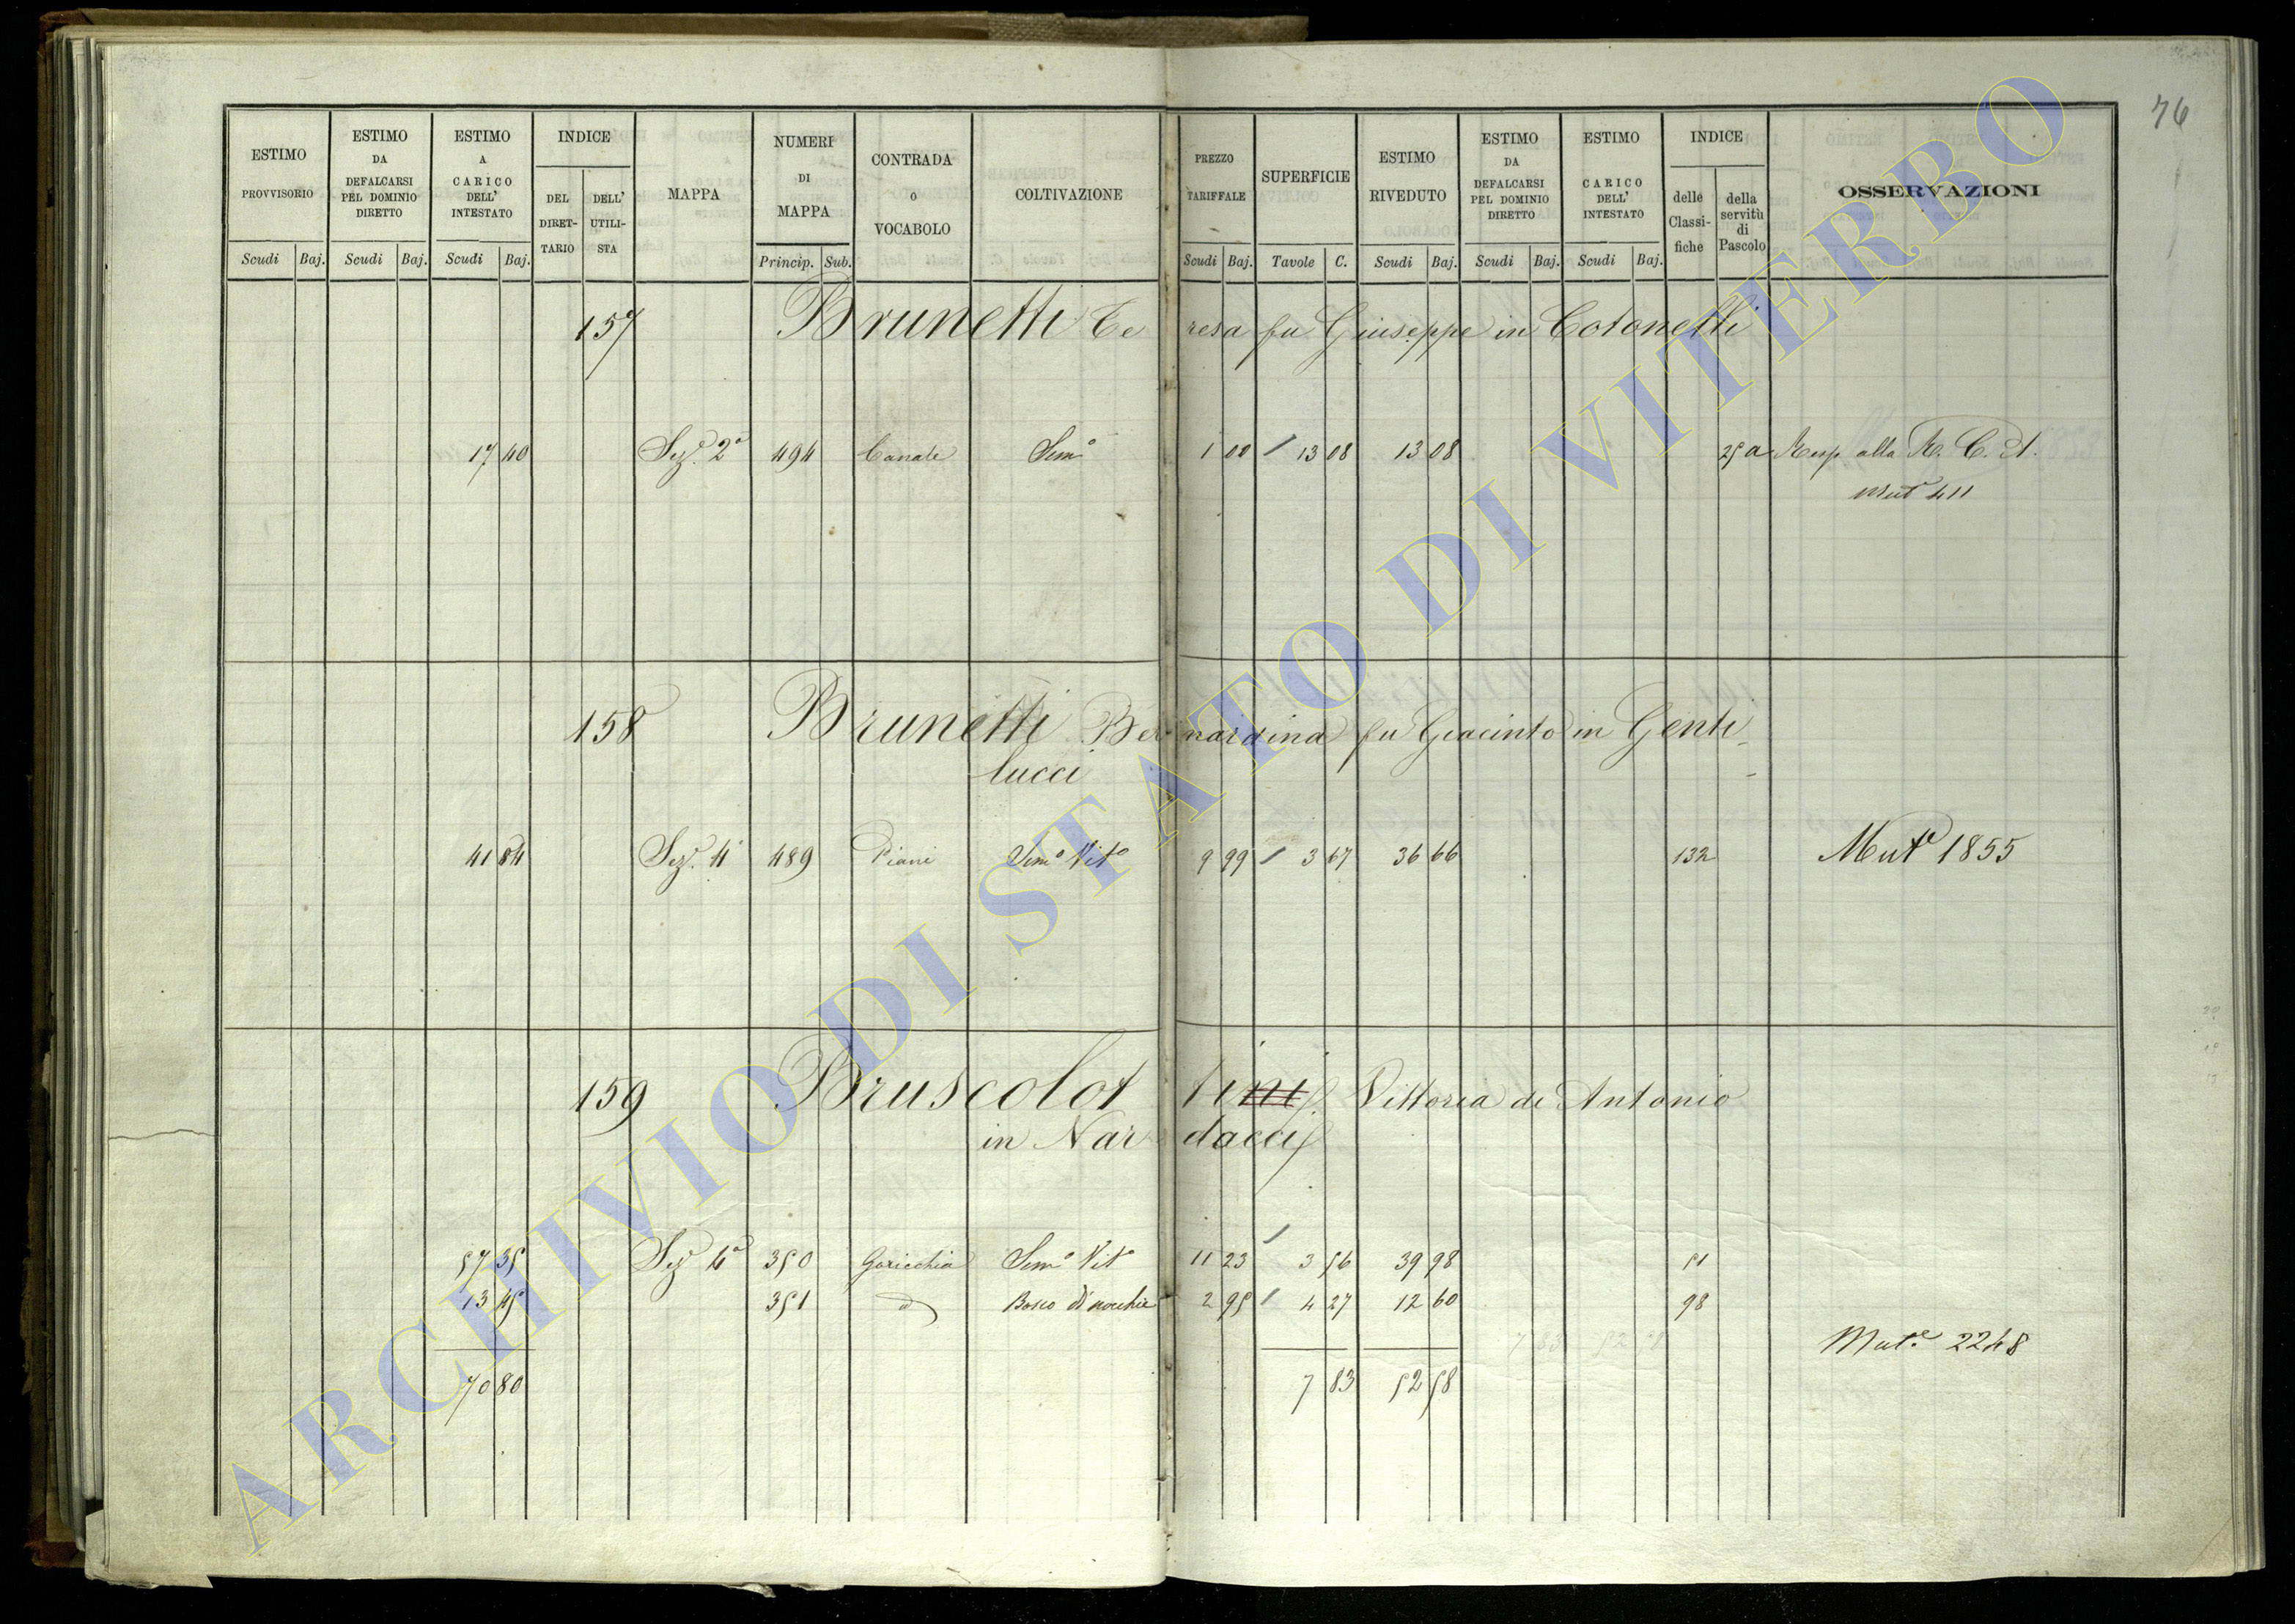 76
ESTIMO PROVVISORIO
ESTIMO DA DEFALCARSI PEL DOMINIO DIRETTO
ESTIMO A CARICO DELL' INTESTATO
INDICE
DEL DIRET-TARIO
DELL' UTILI-STA
MAPPA
NUMERI DI MAPPA
CONTRADA o VOCABOLO
COLTIVAZIONE
PREZZO TARIFFALE
SUPERFICIE
ESTIMO RIVEDUTO
ESTIMO DA DEFALCARSI PEL DOMINIO DIRETTO
ESTIMO A CARICO DELL' INTESTATO
INDICE
delle Classi-fiche
della servitù di Pascolo
OSSERVAZIONI
Scudi Baj. Scudi Baj. Scudi Baj. Princip. Sub. Scudi Baj. Tavole C. Scudi Baj. Scudi Baj. Scudi Baj.
157 Brunetti Teresa fu Giuseppe in Cotonelli
17 40 Sez.e 2a 494 Canale Sem.o 1 00 13 08 13 08 25 a Resp alla R. C. A.
Mut.e 411
158 Brunetti Bernardina fu Giacinto in Genti-
lucci
41 84 Sez.e 4a 489 Piani Sem.o Vit.o 9 99 3 67 36 66 132 Mut.e 1855
159 Bruscolottini Vittoria di Antonio
in Nardacci
57 35 Sez.e 4a 350 Goricchia Sem.o Vit.o 11 23 3 56 39 98 51
13 45 351 d 	Bosco di nocchie 2 95 4 27 12 60 98
Mut.e 2248
70 80 7 83 52 58
ARCHIVIO DI STATO DI VITERBO